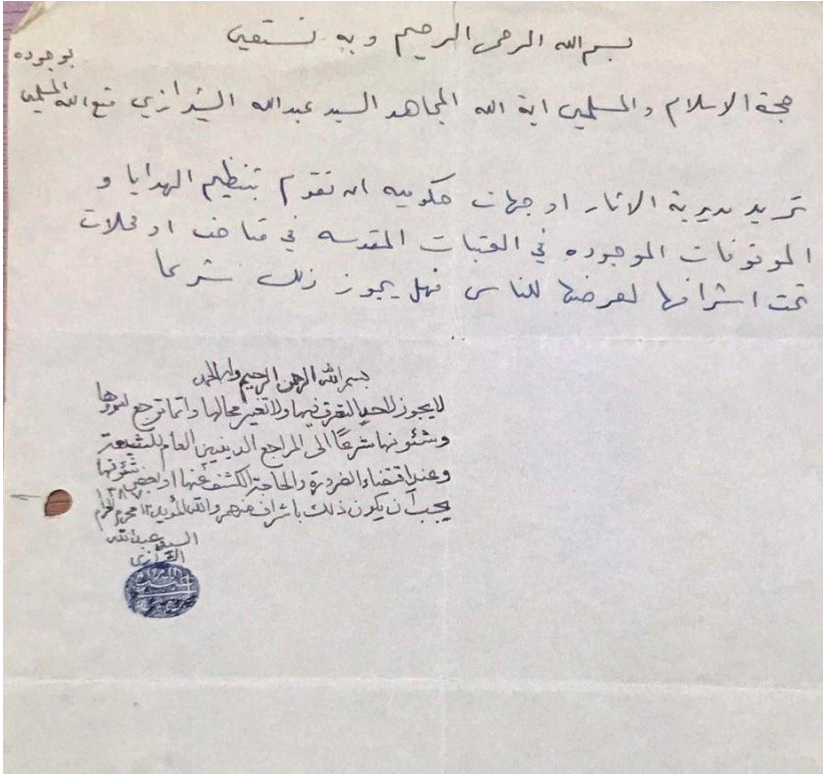 بسم الله الرحمن الرحيم وبه نستعين
حجة الاسلام والمسلمين اية الله المجاهد السيد عبدالله الشيرازي متع الله المسلمين بوجوده
تريد مديرية الاثار او جهات حكوميه ان تقوم بتنظيم الهدايا و
الموقوفات الموجوده في العتبات المقدسه في متاحف او محلات
تحت اشرافها لعرضها للناس فهل يجوز ذلك شرعا
بسم الله الرحمن الرحيم وله الحمد
لا يجوز لاحد التصرف فيها ولا تغيير محالها وانما ترجع امورها
وشئونها شرعاً الى المراجع الدينيين العام للشيعة
وعند اقتضاء الضرورة والحاجة الكشف عنها او بعض شئونها
يجب أن يكون ذلك باشراف منهم والله المؤيد محرم الحرام
السيد عبدالله
الشيرازي